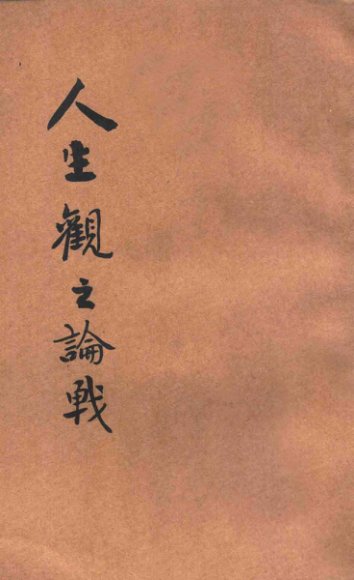 人生觀之論戰